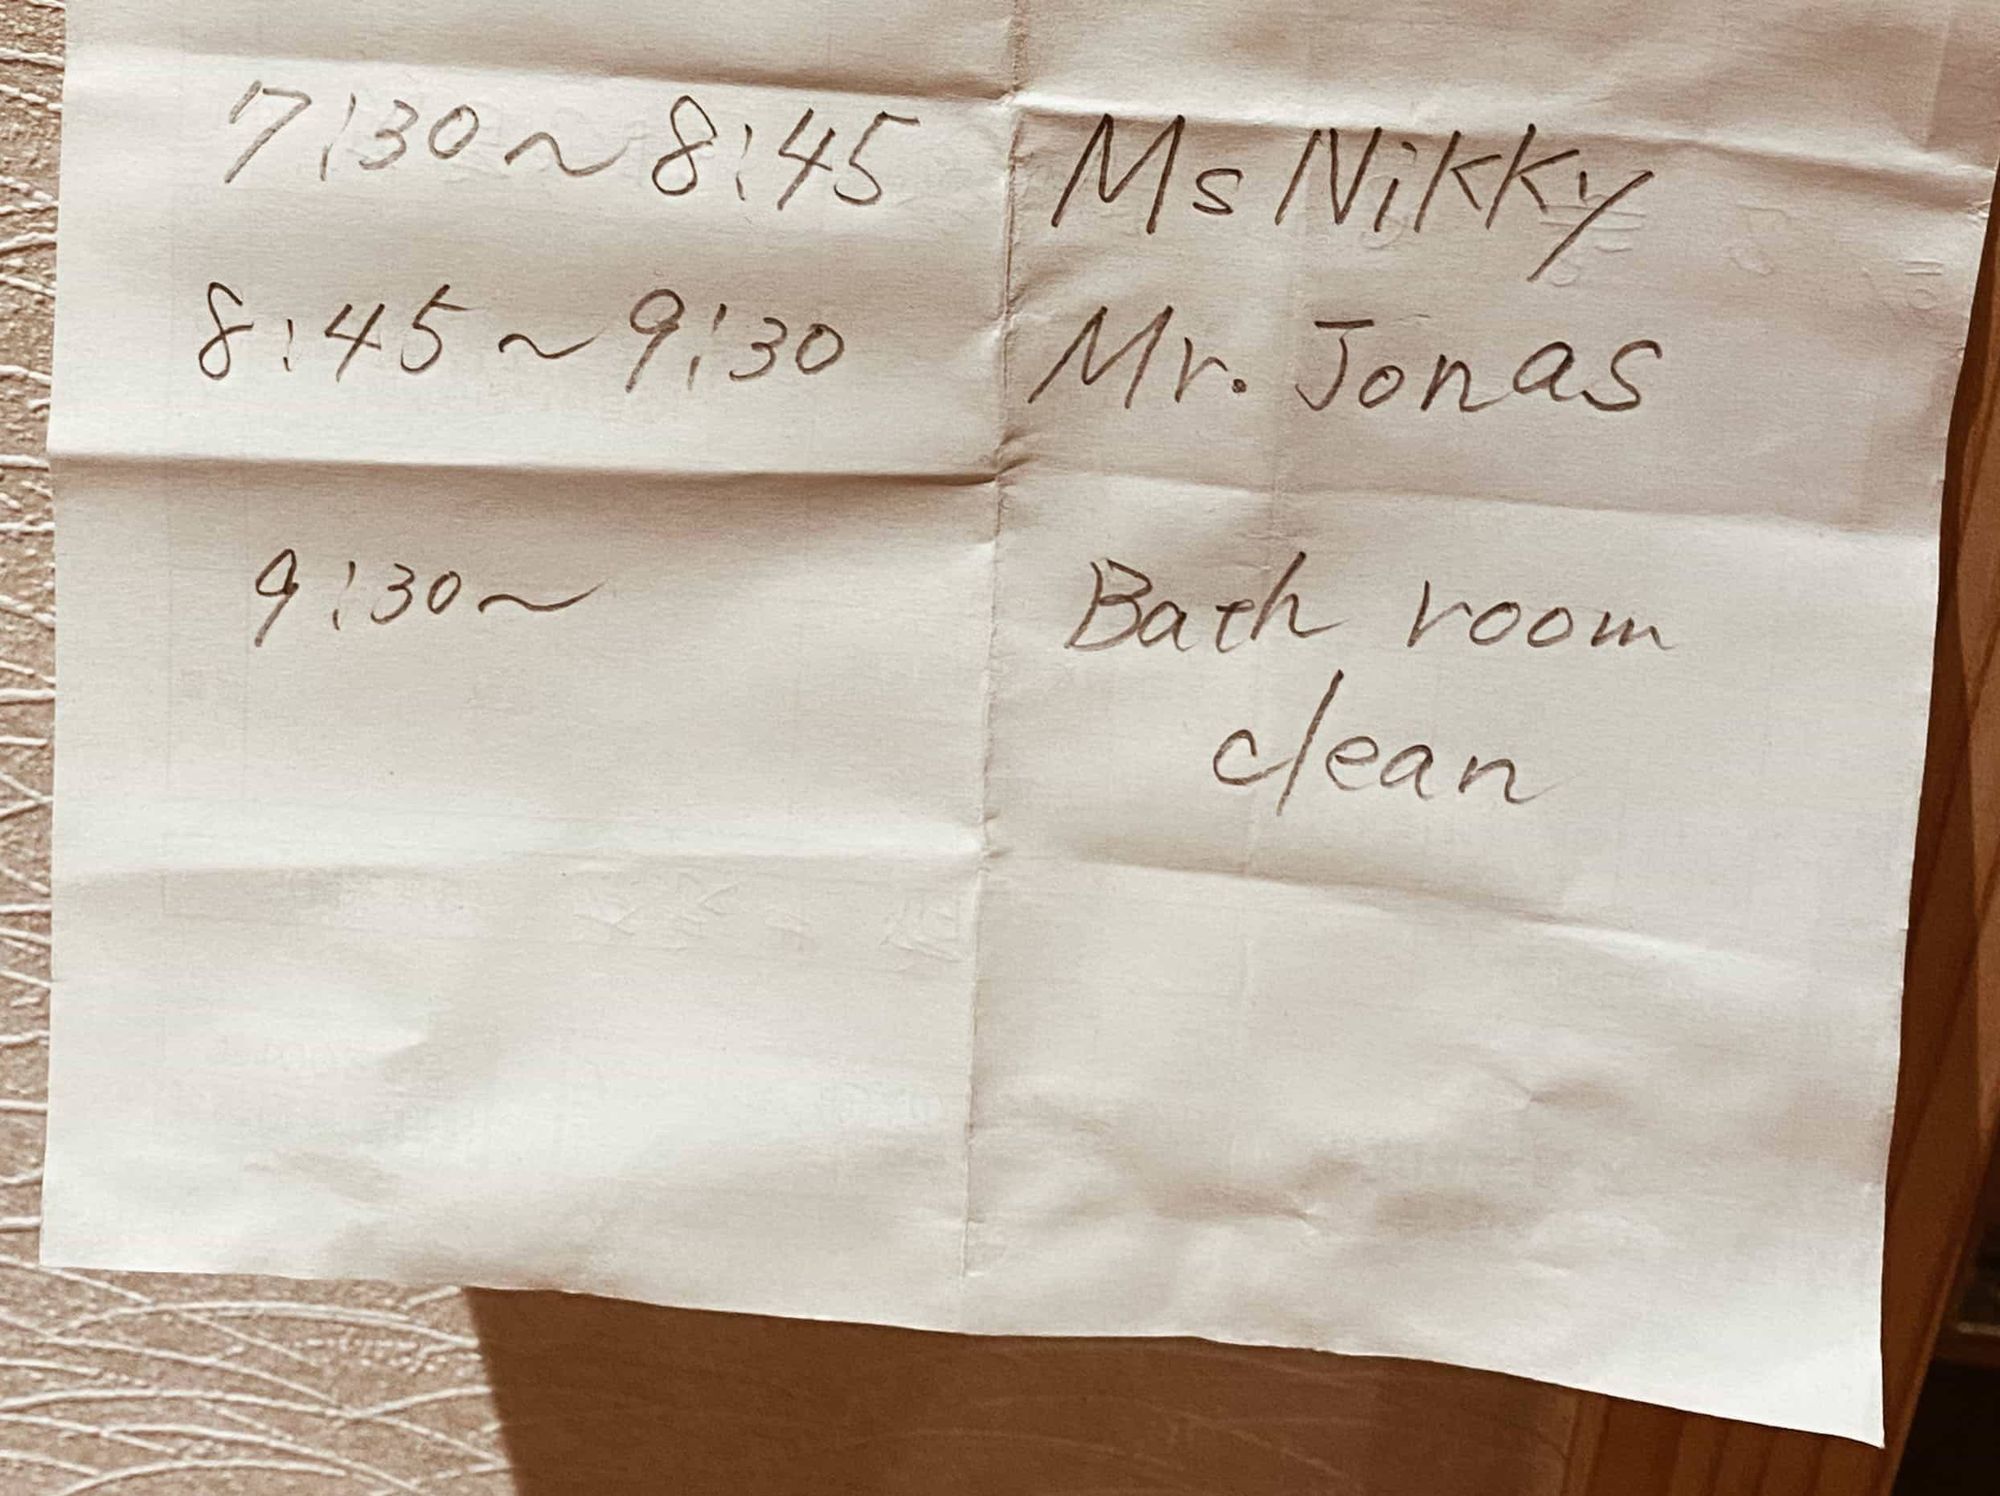 7:30～8:45 Ms Nikky
8:45～9:30 Mr. Jonas
9:30～ Bath room
clean